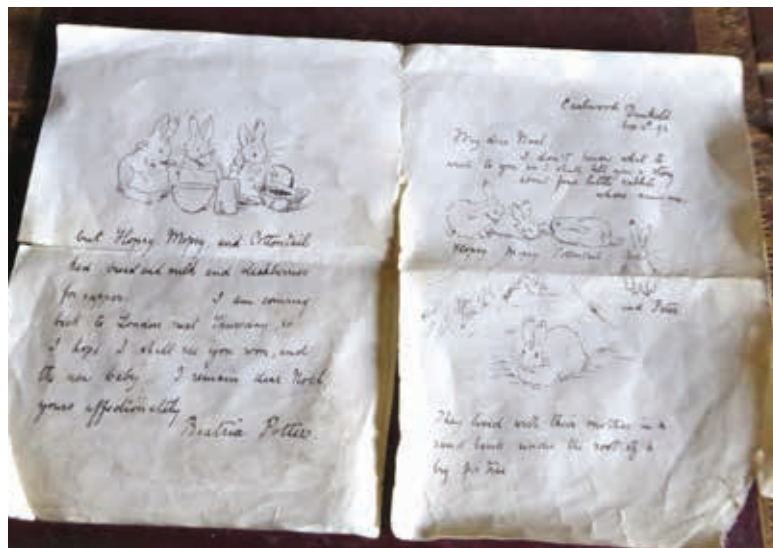 but Flopsy Mopsy and Cottontail
had bread and milk and blackberries
for supper. I am coming
back to London next Thursday, so
I hope I shall see you soon, and
the new baby. I remain dear Noel,
yours affectionately
Beatrix Potter.
Eastwood Dunkeld
My dear Noel,
I don't know what to
write to you, so I shall tell you a story
about four little rabbits
whose names
Flopsy Mopsy Cottontail
and Peter
They lived with their mother in a
sand bank under the root of a
big fir tree